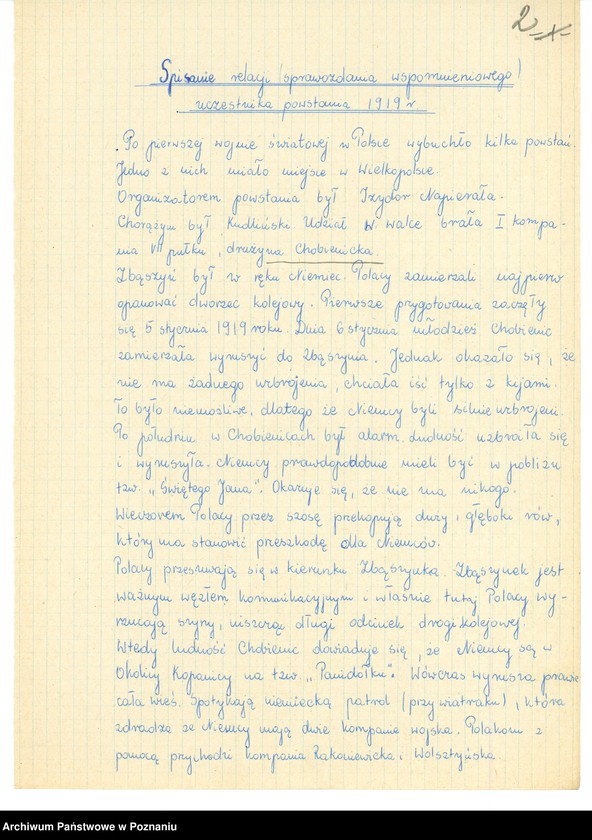 2
-x-
Spisanie relacji (sprawozdania wspomnieniowego)
uczestnika powstania 1919 r
Po pierwszej wojnie światowej w Polsce wybuchło kilka powstań.
Jedno z nich miało miejsce w Wielkopolsce.
Organizatorem powstania był Izydor Napierała.
Chorążym był Kudliński. Udział w walce brała I kompa-
nia VII pułku, drużyna Chobienicka.
Zbąszyń był w ręku Niemiec. Polacy zamierzali najpierw
opanować dworzec kolejowy. Pierwsze przygotowania zaczęły
się 5 stycznia 1919 roku. Dnia 6 stycznia młodzież Chobienic
zamierzała wyruszyć do Zbąszynia. Jednak okazało się, że
nie ma żadnego uzbrojenia, chciała iść tylko z kijami.
To było niemożliwe, dlatego że Niemcy byli silnie uzbrojeni.
Po południu w Chobienicach był alarm. Ludność uzbroiła się
i wyruszyła. Niemcy prawdopodobnie mieli być w pobliżu
tzw. "Świętego Jana". Okazuje się, że nie ma nikogo.
Wieczorem Polacy przez szosę przekopują duży i głęboki rów,
który ma stanowić przeszkodę dla Niemców.
Polacy przesuwają się w kierunku Zbąszynka. Zbąszynek jest
ważnym węzłem komunikacyjnym i właśnie tutaj Polacy wy-
rzucają szyny, niszcząc długi odcinek drogi kolejowej.
Wtedy ludność Chobienic dowiaduje się, że Niemcy są w
Okolicy Kopanicy na tzw. "Panidołku". Wówczas wyrusza prawie
cała wieś. Spotykają niemiecką patrol (przy wiatraku), która
zdradza że Niemcy mają dwie kompanie wojska. Polakom z
pomocą przychodzi kompania Rakoniewicka i Wolsztyńska.
Archiwum Państwowe w Poznaniu